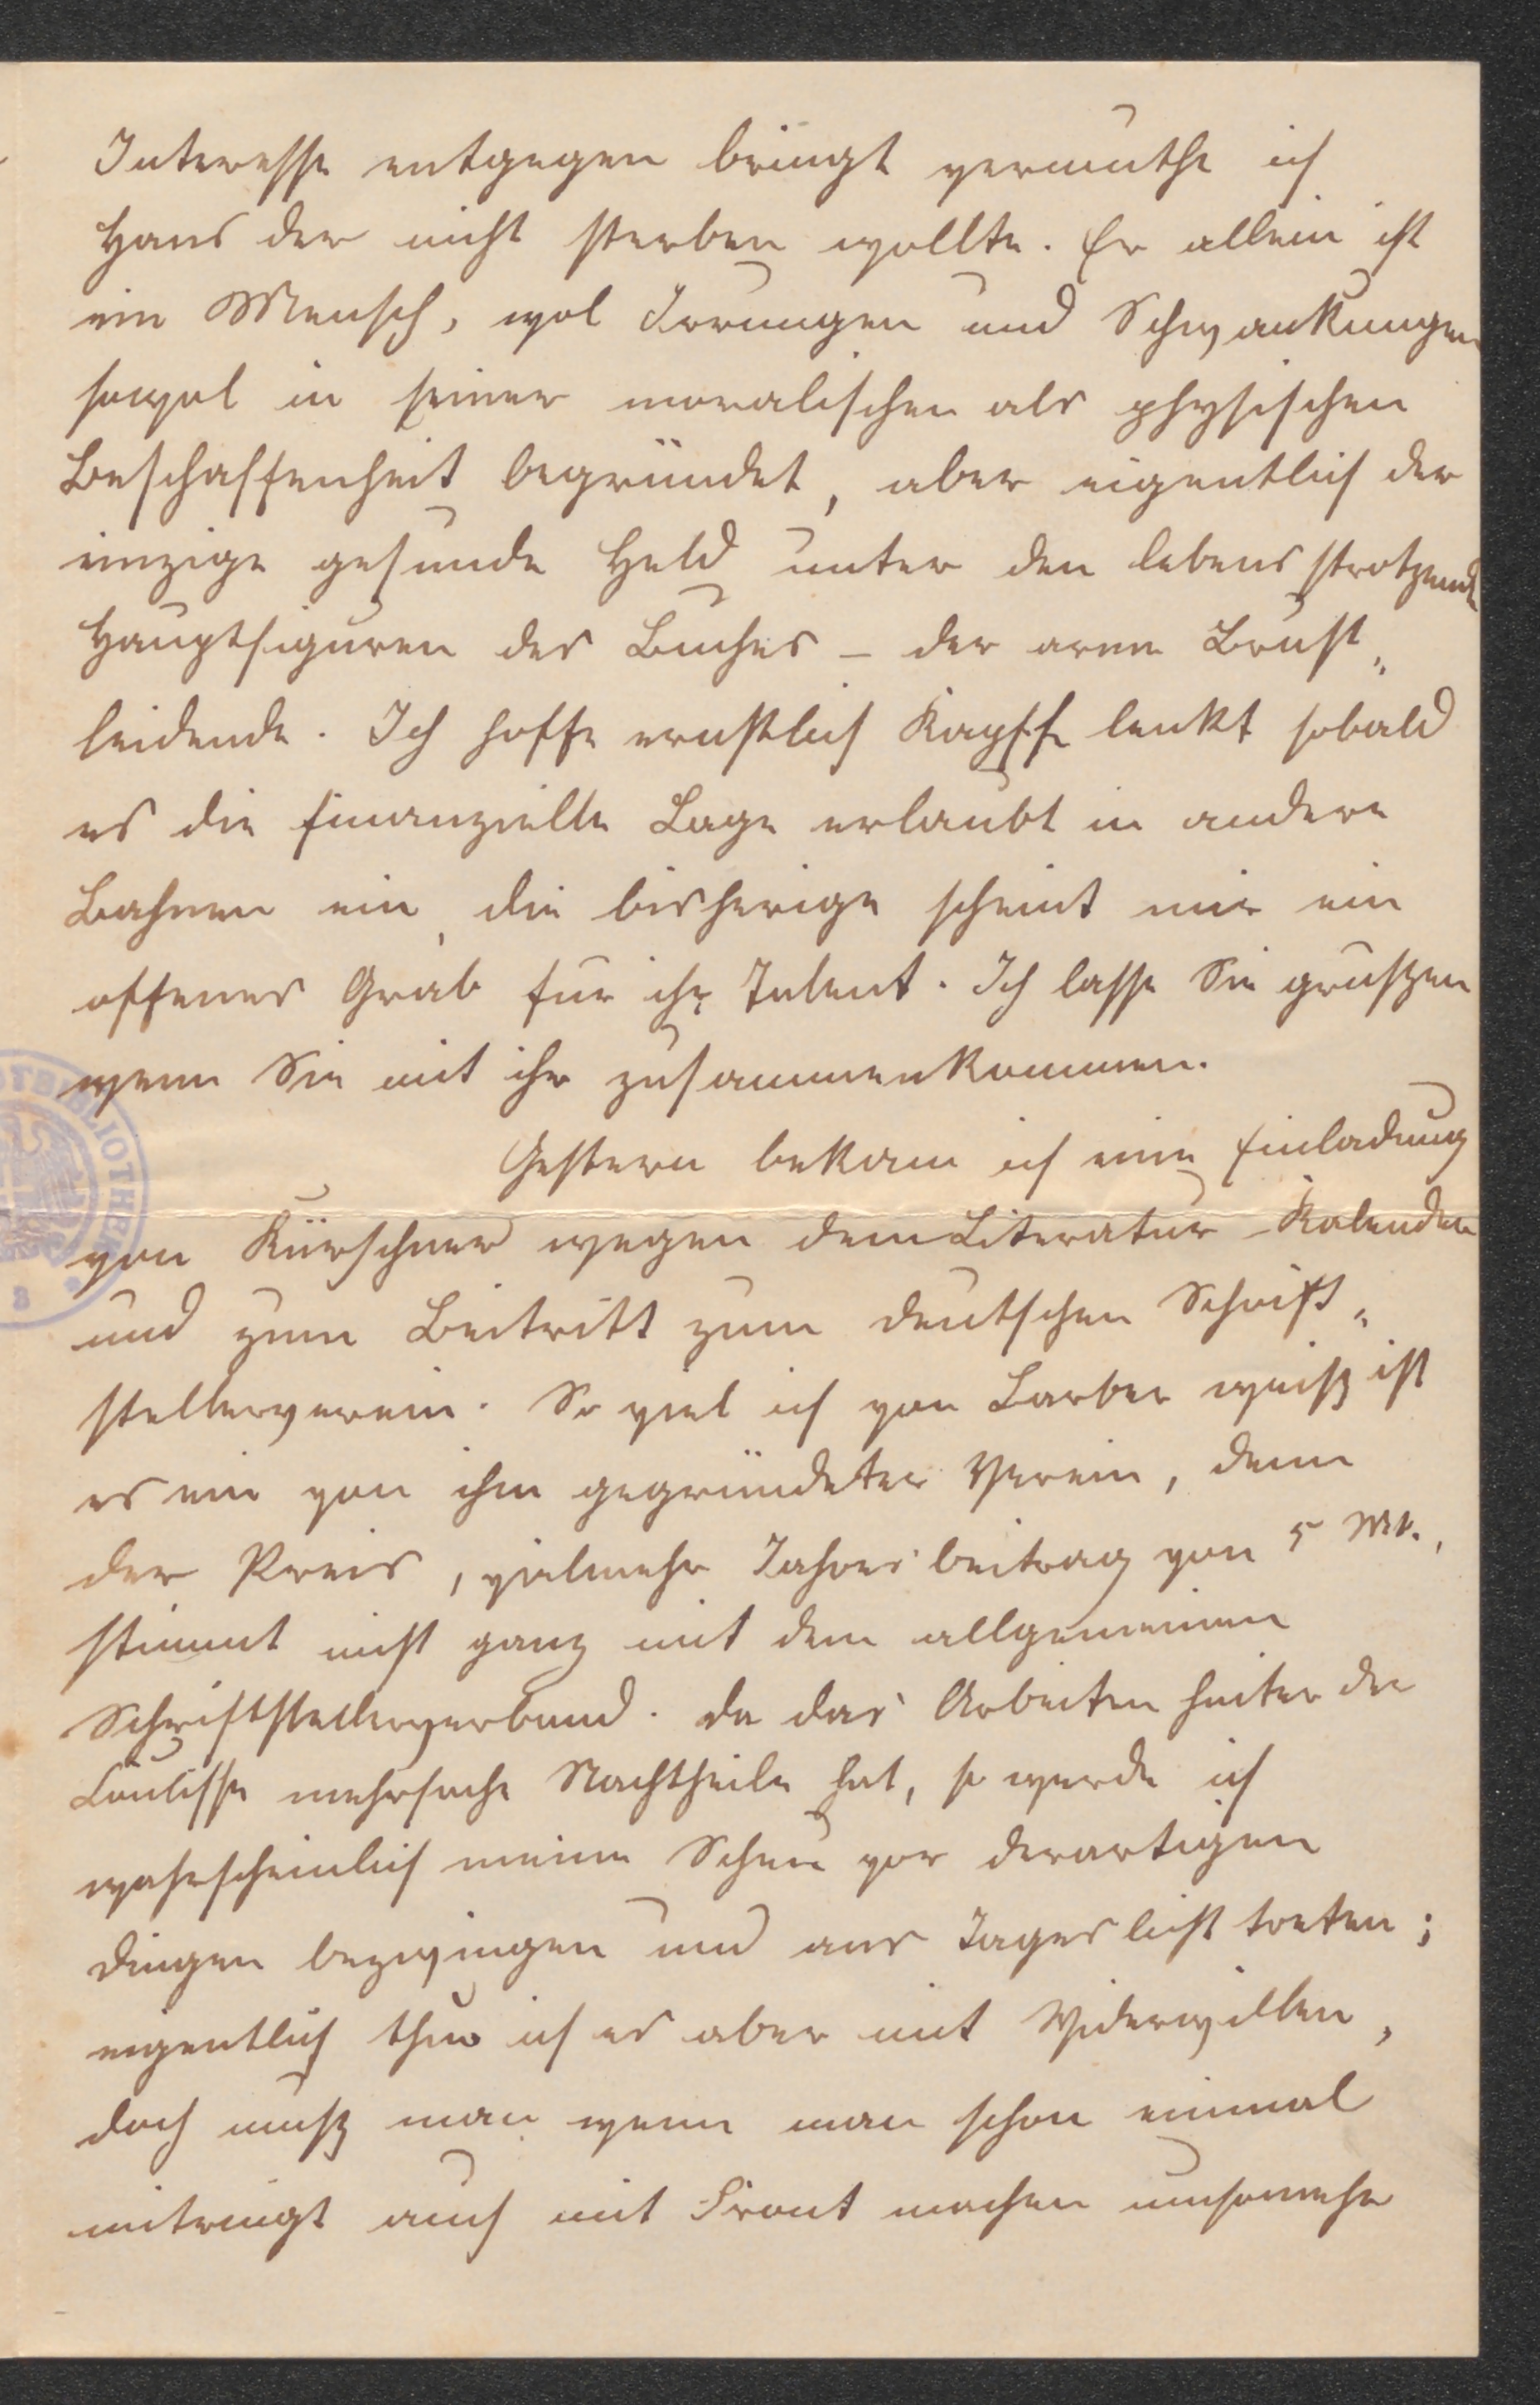 Interesse entgegen bringt vermuthe ich
Hans der nicht sterben wollte. Er allein ist
ein Mensch, wol Irrungen und Schwankungen
sowol in seiner moralischen als physischen
Beschaffenheit begründet, aber eigentlich der
einzige gesunde Held unter den lebens strotzenden
Hauptfiguren des Buches – der arme Brust„
leidende. Ich hoffe ernstlich Kapff lenkt sobald
es die finanzielle Lage erlaubt in andere
Bahnen ein, die bisherige scheint mir ein
offenes Grab für ihr Talent. Ich lasse Sie grüßen
wenn Sie mit ihr zusammenkommen.
Gestern bekam ich eine Einladung
von Kürschner wegen dem Literatur-Kalender
und zum Beitritt zum deutschen Schrift„
stellerverein. So viel ich von Barber weiß ist
es ein von ihm gegründeter Verein, denn
der Preis, vielmehr Jahres beitrag von 5 Mk.,
stimmt nicht ganz mit dem allgemeinen
Schriftstellerverband. Da das Arbeiten hinter der
Coulisse mehrfache Nachtheile hat, so werde ich
wahrscheinlich meine Scheu vor derartigen
Dingen bezwingen und ans Tageslicht treten;
eigentlich thue ich es aber mit Widerwillen,
doch muß man wenn man schon einmal
mitringt auch mit Front machen umsomehr